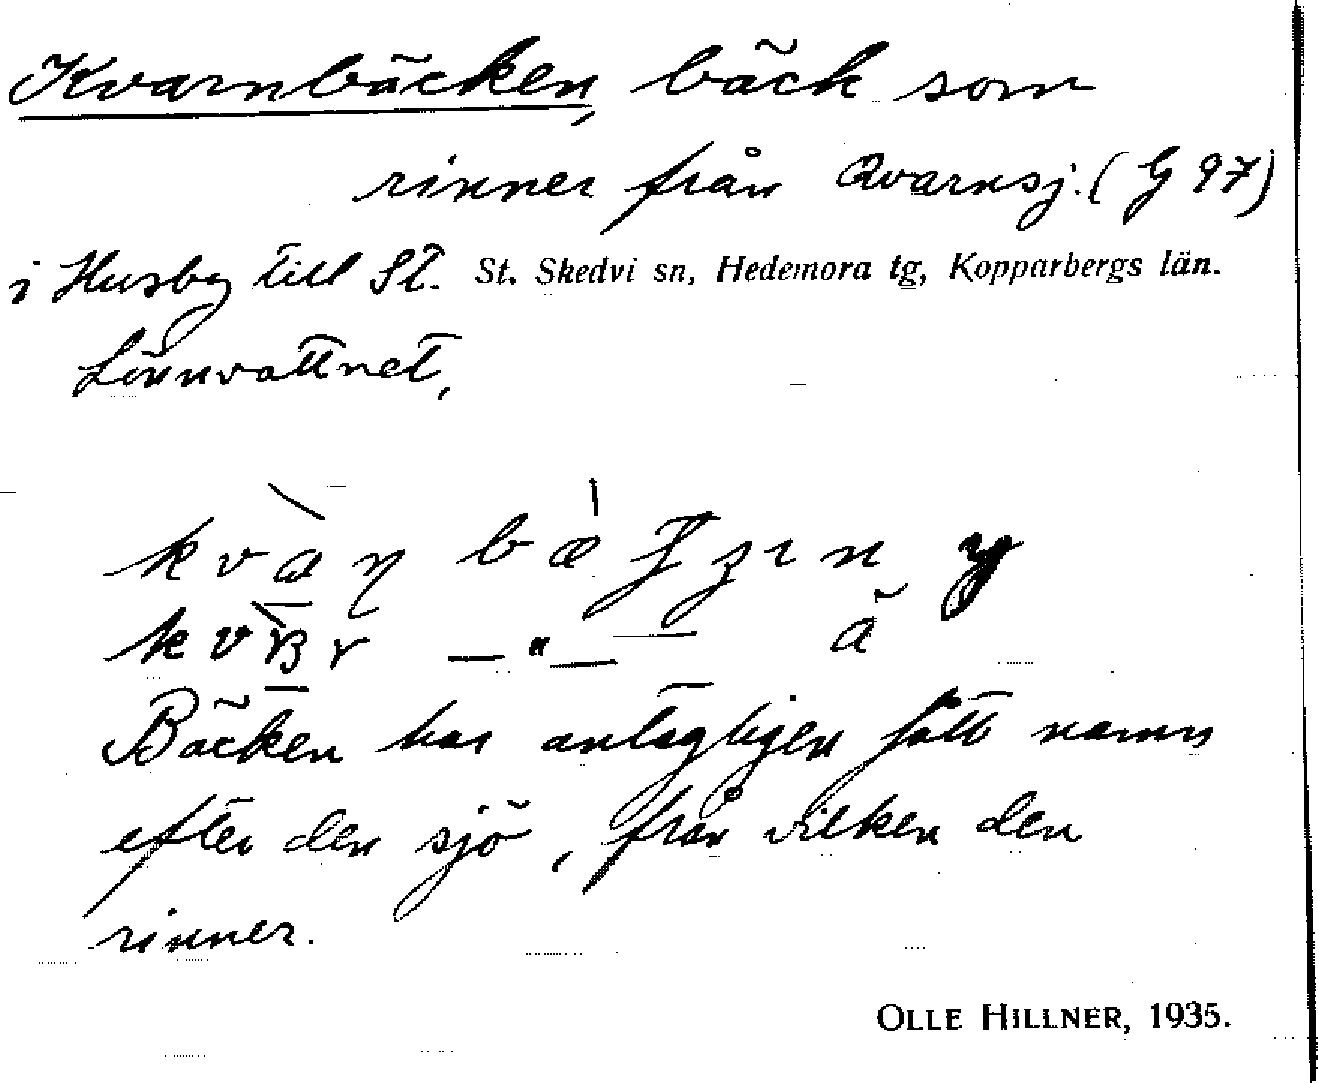 Kvarnbäcken, bäck som
rinner från Qvarnsj. (G 97)
i Husby till St. St. Skedvi sn, Hedemora tg, Kopparbergs län.
Lönnvattnet,
y
kv r — " — ä
Bäcken har antagligen fått namn
efter den sjö, från vilken den
rinner.
OLLE HILLNER, 1935.